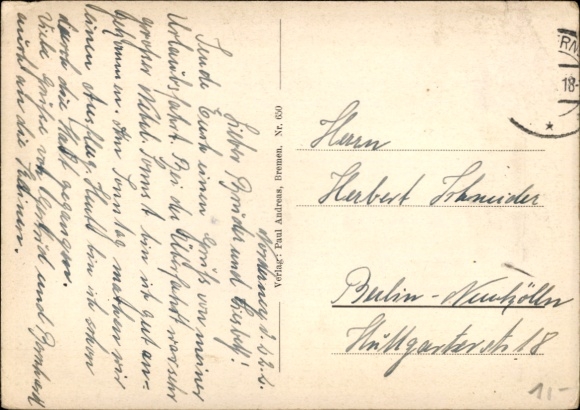 Norderney d.
Lieber Bruder und Liesbeth!
Sende Euch einen Gruß von meiner
Urlaubsfahrt. Bei der Überfahrt war sehr
großer Nebel. Sonst bin ich gut an-
gekommen. Am Sonntag machen wir
einen Ausflug. Heute bin ich schon
durch die Stadt gegangen.
Viele Grüße von und Bernhard
auch an die
Verlag: Paul Andreas, Bremen. Nr. 650
Herrn
Herbert Schneider
Berlin-Neukölln
18
18-
1,-